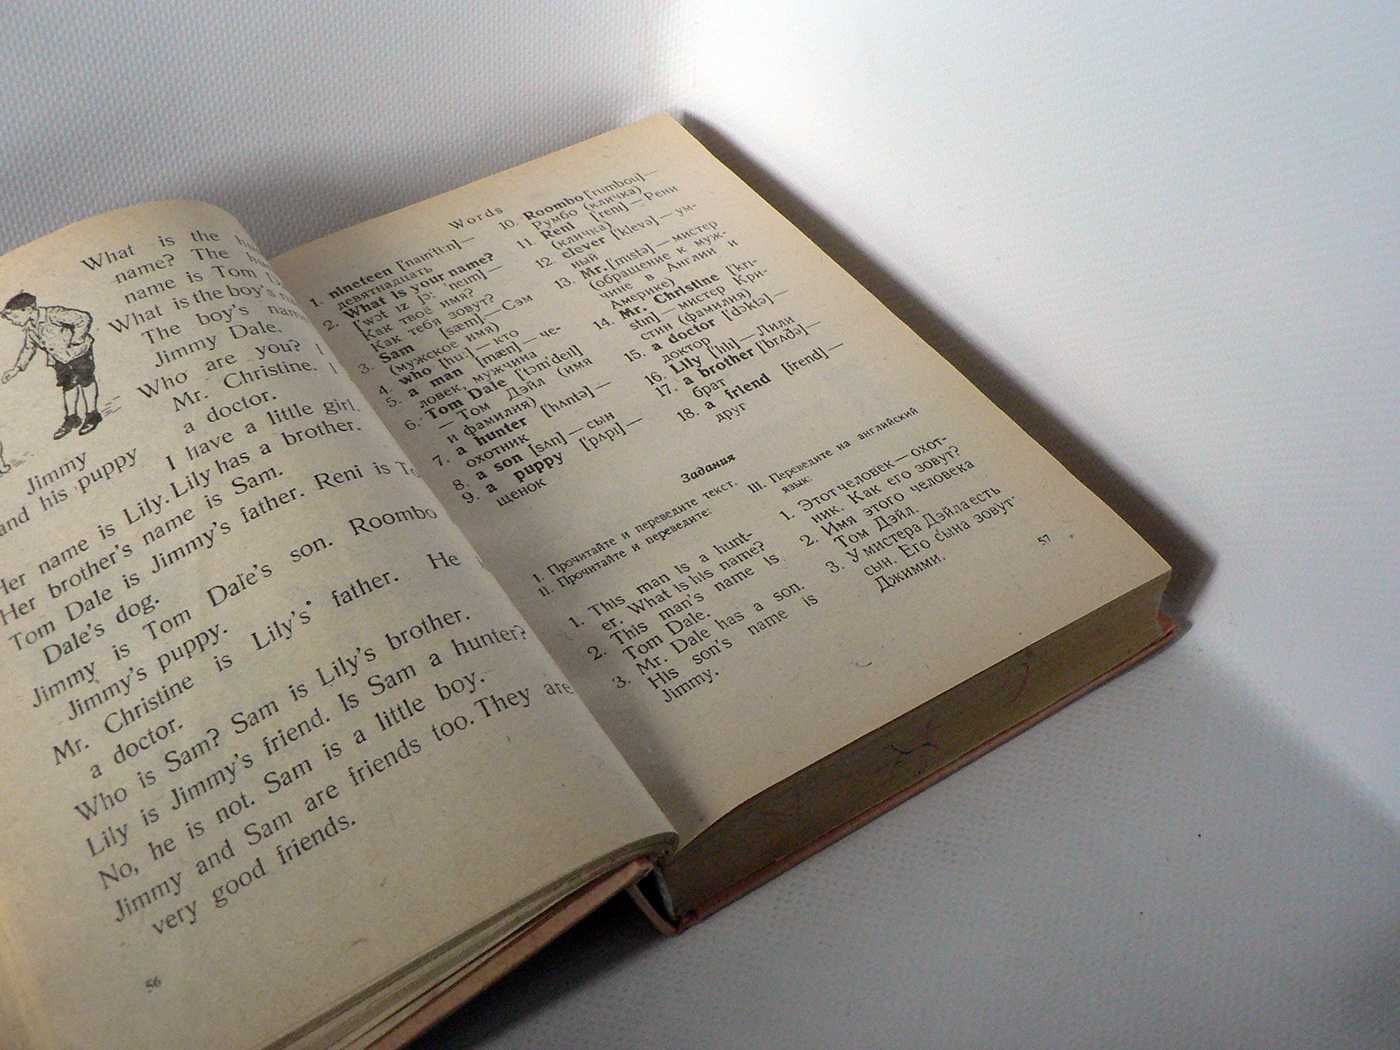 What is the
name? The
name is Tom
What is the boy's
The boy's name
Jimmy Dale.
Who are you? I
Mr. Christine. I
a doctor.
I have a little girl.
Jimmy
and his puppy
Her name is Lily. Lily has a brother.
Her brother's name is Sam.
Tom Dale is Jimmy's father. Reni is
Dale's dog.
Jimmy is Tom Dale's son. Roombo
Jimmy's puppy.
Mr. Christine is Lily's father. He
a doctor.
Who is Sam? Sam is Lily's brother.
Lily is Jimmy's friend. Is Sam a hunter?
No, he is not. Sam is a little boy.
Jimmy and Sam are friends too. They are
very good friends.
56
Words
1. nineteen [naın'ti:n] —
девятнадцать
2. What is your name?
[wɔt ız jɔ: neım] —
Как твоё имя?
Как тебя зовут?
3. Sam [sæm] — Сэм
(мужское имя)
4. who [hu:] — кто
5. a man [mæn] — че-
ловек, мужчина
6. Tom Dale ['tɔm'deıl]
— Том Дэйл (имя
и фамилия)
7. a hunter [hʌntə] —
охотник
8. a son [sʌn] — сын
9. a puppy ['pʌpı] —
щенок
10. Roombo ['rumbou] —
Румбо (кличка)
11. Reni ['renı] — Рени
(кличка)
12. clever ['klevə] — ум-
ный
13. Mr. ['mıstə] — мистер
(обращение к муж-
чине в Англии и
Америке)
14. Mr. Christine ['krı-
stın] — мистер Кри-
стин (фамилия)
15. a doctor ['dɔktə] —
доктор
16. Lily ['lılı] — Лили
17. a brother ['brʌðə] —
брат
18. a friend [frend] —
друг
Задания
I. Прочитайте и переведите текст.
II. Прочитайте и переведите:
1. This man is a hunt-
er. What is his name?
2. This man's name is
Tom Dale.
3. Mr. Dale has a son.
His son's name is
Jimmy.
III. Переведите на английский
язык:
1. Этот человек — охот-
ник. Как его зовут?
2. Имя этого человека
Том Дэйл.
3. У мистера Дэйла есть
сын. Его сына зовут
Джимми.
57